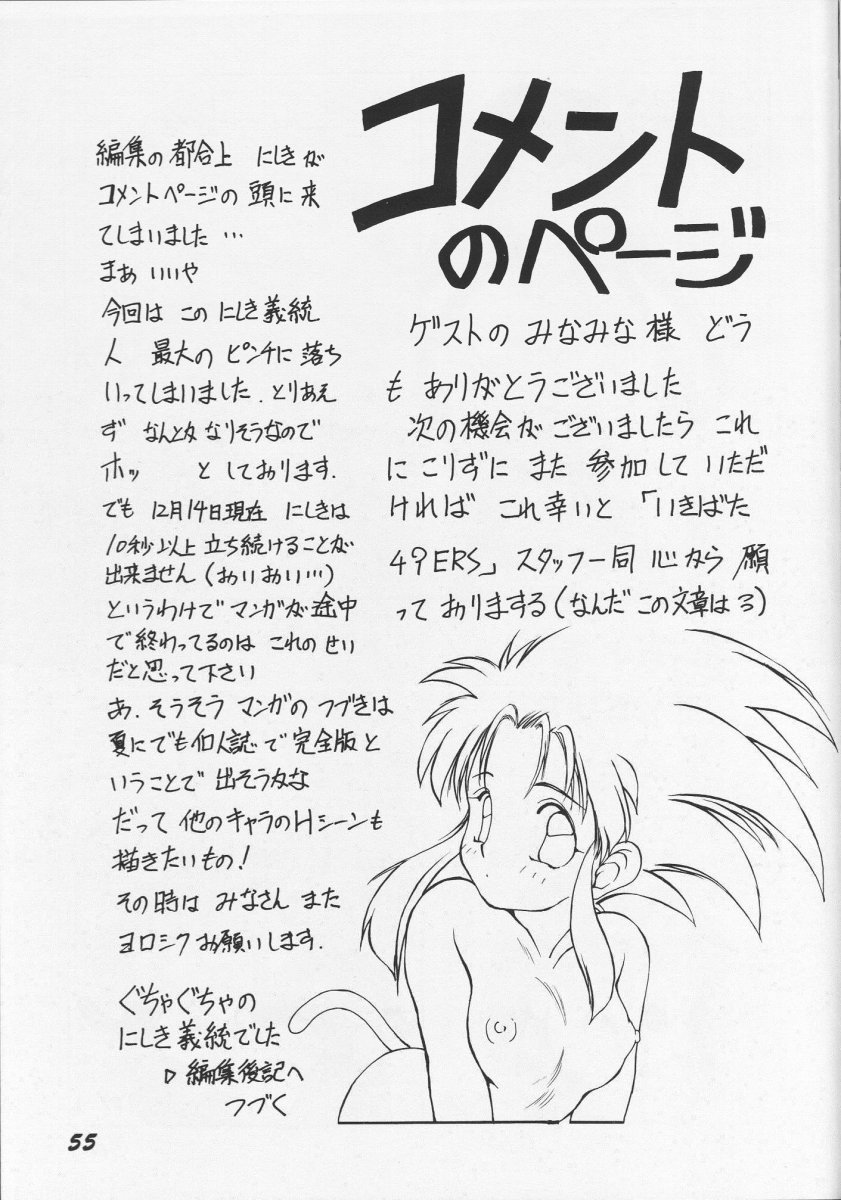 コメント
のページ
ゲストの みなみな様 どう
も ありがとうございました
次の機会がございましたら これ
に こりずに また 参加して いただ
ければ これ幸いと 「いきばた
49ERS」スタッフ一同 心から 願
って おりまする(なんだ この文章は3)
編集の都合上 にしきが
コメントページの 頭に来
てしまいました …
まぁ いいや
今回は この にしき義統
人 最大の ピンチに 落ち
いってしまいました. とりあえ
ず なんとか なりそうなので
ホッ としております.
でも 12月14日現在 にしきは
10秒以上 立ち続けることが
出来ません(おいおい…)
というわけで マンガが 途中
で終わってるのは これの せい
だと思って下さい
あ. そうそう マンガの つづきは
夏にでも 個人誌で 完全版と
いうことで 出そうかな
だって 他のキャラのHシーンも
描きたいもの!
その時は みなさん また
ヨロシク お願いします.
ぐちゃぐちゃの
にしき義統でした
▷ 編集後記へ
つづく
55